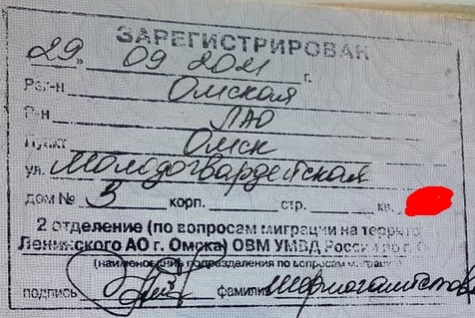 ЗАРЕГИСТРИРОВАН
29 09 2021 г.
Рег-н Омская
Р-н ЛАО
Пункт Омск
ул. Молодогвардейская
дом № 3 корп. стр. кв.
2 отделение (по вопросам миграции на террито
Ленинского АО г. Омска) ОВМ УМВД России по г. О
(наименование подразделения по вопросам миграц
подпись фамилия